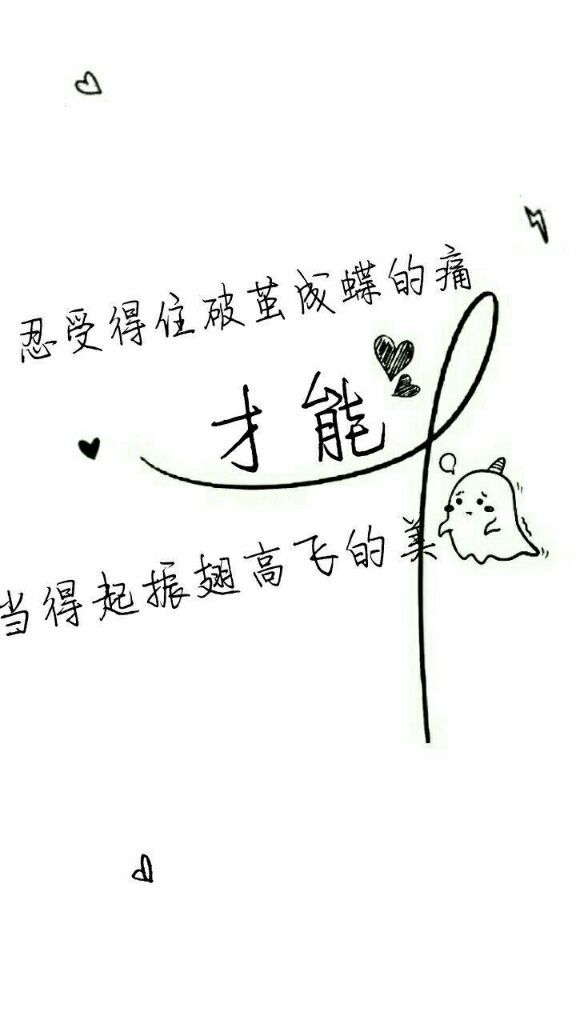 忍受得住破茧成蝶的痛
才能
当得起振翅高飞的美